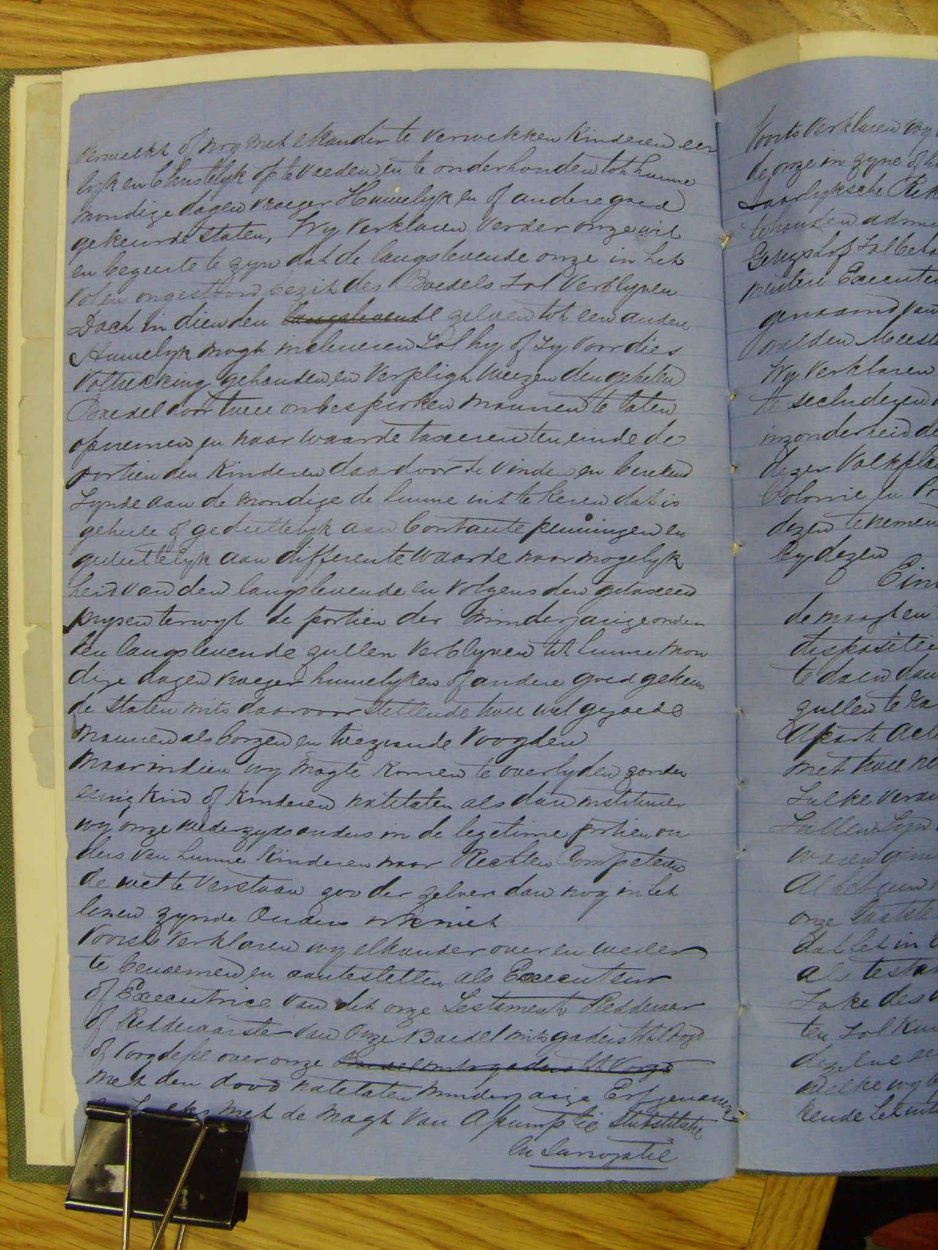 verwekt of nog met elkander te verwekken Kinderen eer
lyk en Christelyk op te voeden en te onderhouden tot hunne
mondige dagen vroeger Huwelyk en of andere goed
gekeurde Staten, Wy Verklaren Verder onze wil
en begeerte te zyn dat de langslevende onze in het
vol en ongestoord bezit des Boedels Sal Verblyven
Doch in dien den langslevende zelven tot een ander
Huwelyk mogt inclineren Sal hy of Zy Voor dies
Voltrekking gehouden en Verpligt weezen den geheelen
Boedel door twee onbesproken mannen te laten
opnemen en naar waarde taxeren ten einde de
portien den Kinderen daardoor te vinden en
Zynde aan de mondige de hunne uit te keren dat is
geheele of gedeeltelyk aan Contante penningen en
gedeeltelyk aan differente waarde naar mogelyk
heid van den langslevende en Volgens den getaxeerd
prysen terwyl de portien der minderjarige onder
den langslevende zullen Verblyven tot hunne mon
dige dagen vroeger huwelyken of andere goed gekeur
de Staten mits daarvoor Stellende twee wel gegoede
mannen als borgen en toeziende Voogden
Maar indien wy mogte komen te overlyden zonder
eenig Kind of Kinderen natelaten als dan institueer
wy onze wederzyds ouders in de legitime portien ou
ders van hunne Kinderen naar Rechten Competeren
de wel te Verstaan zoo der zelver dan nog in het
leven zynde Ouders niet
Voorts Verklaren wy elkander over en weder
te benoemen en aantestellen als Executeur
of Executrice van dit onze Testament Redderaar
of Redderaarster van Onze Boedel mitsgaders tot Voogd
of Voogdesse over onze Boedel mitsgaders tot Voogd
met den dood natelaten minderjarige Erfgenamen
met de Magt van Assumptie Substitutie
en Surrogatie
Voorts Verklaren wy
de onze in zyne of h
Jaarlyksche
te houden admi
genaamd van
Wy Verklaren
te secluderen
inzonderheid de
dezer Volkpla
Colonie in
dezen te nemen
by dezen
Ein
de magt en
dispositie
te doen dan
zullen te
Aparte Acte
met twee
zulke veran
zullen zyn
waren
Al het geen
onze
dat let in
als testa
ten zal kun
dezelve
welke wy